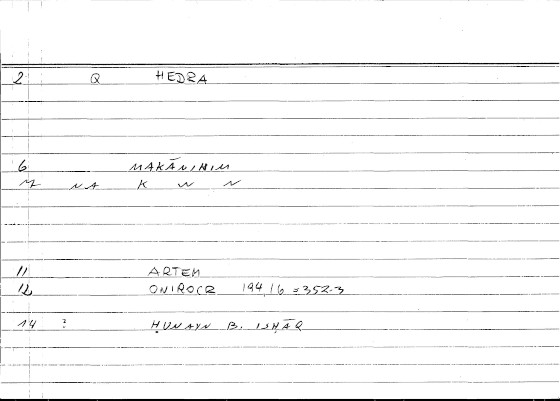 2 Q HEDRA
6 MAKĀNIHIM
M NA K W N
11 ARTEM
12 ONIROCR 194,16 = 352.3
14 ? ḤUNAYN B. ISḤĀQ